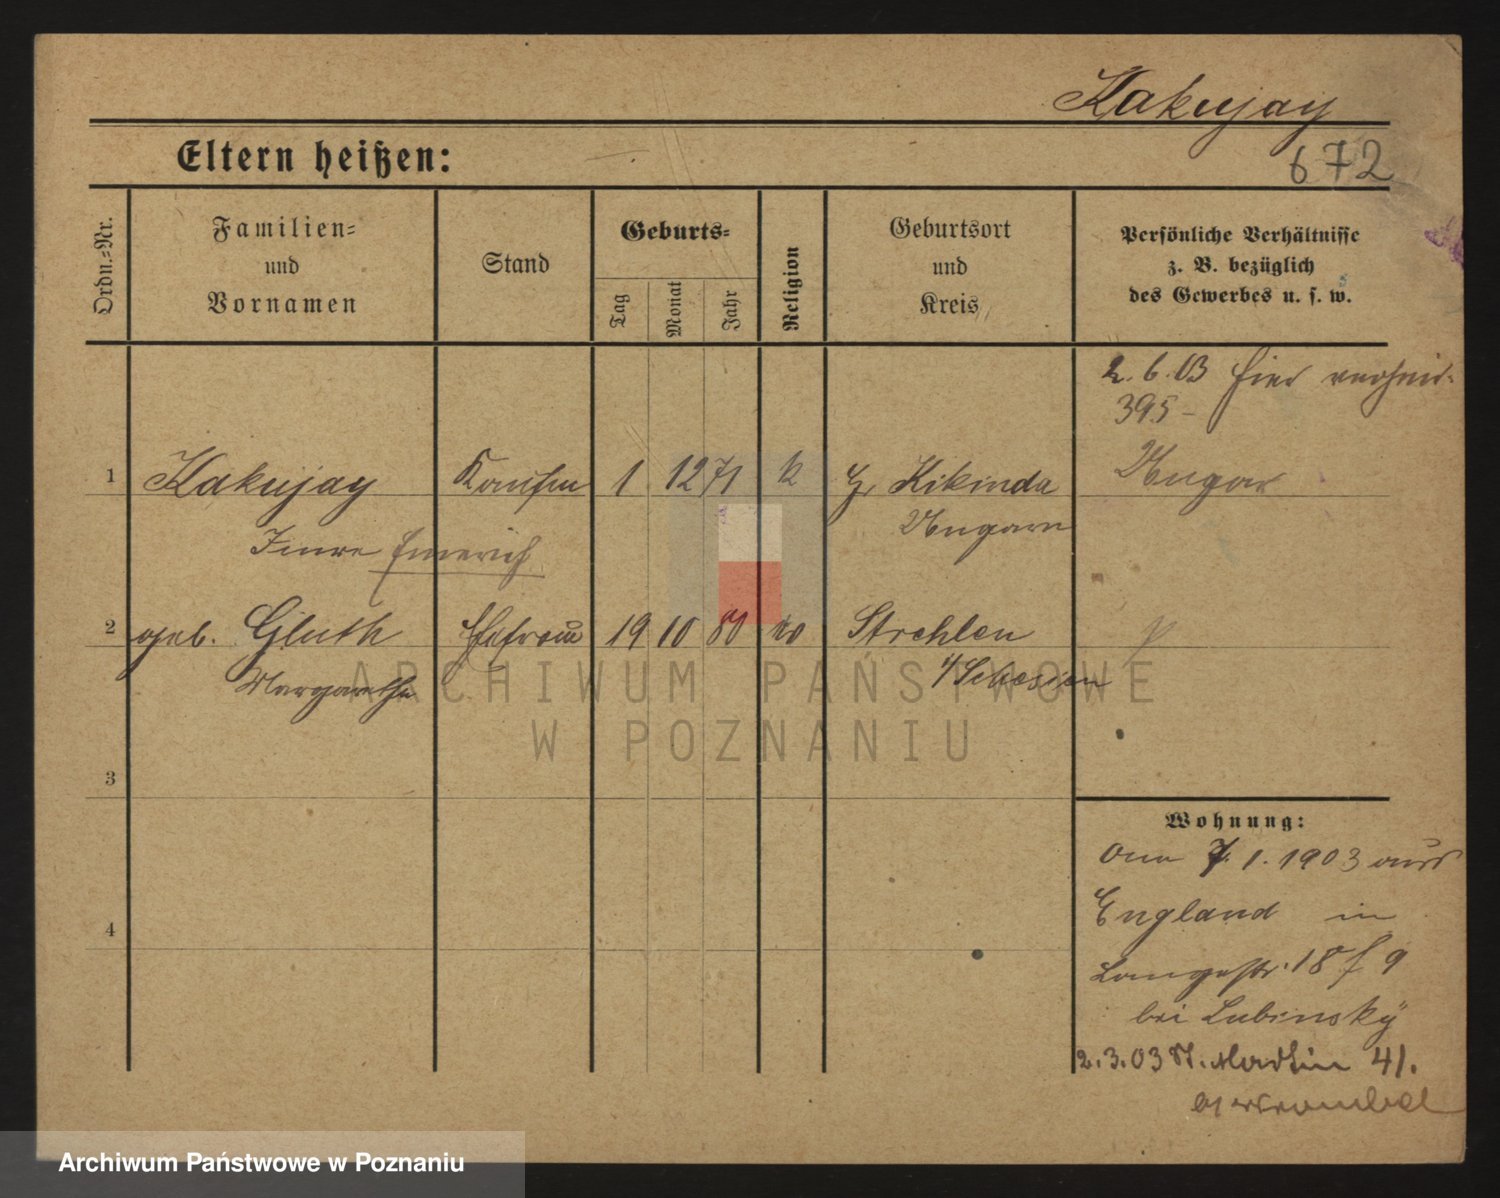 Kakujay
Eltern heißen:
672
Ordn.-Nr.
Familien-
und
Vornamen
Stand
Geburts-
Tag
Monat
Jahr
Religion
Geburtsort
und
Kreis
Persönliche Verhältnisse
z. B. bezüglich
des Gewerbes u. s. w.
2. 6. 03 hier
395 -
1 Kakujay Kaufm 1 12 71 k Gr Kikinda Ungar
Ungarn
Imre Emerich
2 geb. Gluth Ehefrau 19 10 80 Strehlen
Margarethe i/Schlesien
ARCHIWUM PAŃSTWOWE
W POZNANIU
3
Wohnung:
7. 1. 1903 aus
4 England in
Langestr. 18 9
bei Lubinsky
2. 3. 03 St. Martin 41.
Archiwum Państwowe w Poznaniu